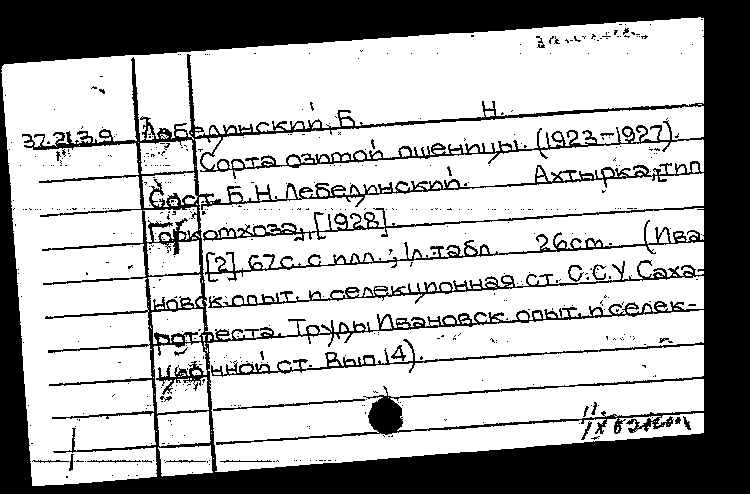 37.21.3.9 Лебединский, Б. Н.
Сорта озимой пшеницы. (1923-1927).
Сост. Б. Н. Лебединский. Ахтырка, тип.
Горкомхоза, [1928].
[2], 67 с. с илл.; 1 л. табл. 26 см. (Ива
новск. опыт. и селекционная ст. С.С.У. Саха=
ротреста. Труды Ивановск. опыт. и селек-
ционной ст. Вып. 14).